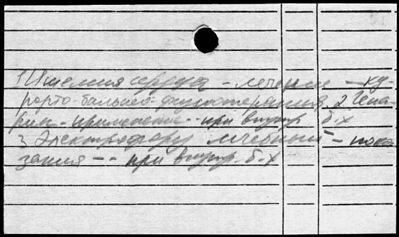 1 Ишемия сердца - лечение - ку
рорто-бальнео-физиотерапия 2 Гепа
рин - применение - при внутр. б-х
3 Электрофорез лечебный - пока
зания -- при внутр. б-х